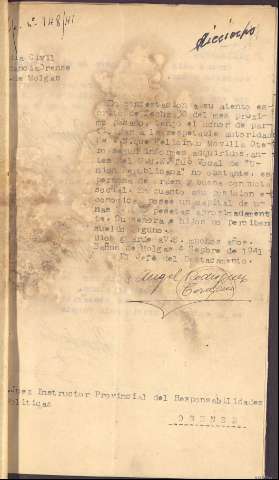 nº 148/41
dieciocho
ia Civil
Orense
de Molgas
En contestacion a su atento es-
crito de fecha 30 del mes proxi-
mo pasado, tengo el honor de par-
a la respetable autoridad
de V.S. que Feliciano Movilla Ote-
según informes adquiridos, an-
tes del G.M.N. fué Vocal de "U-
nión Republicana" no obstante, es
persona de orden y buena conducta
social. En cuanto a su posicion e-
conomica posee un capital de u-
nas pesetas aproximadamen-
te. Su señora e hijos no perciben
sueldo alguno.
Dios guarde a V.S. muchos años.
Baños de Molgas 4 Sepbre de 1941
El Jefe del Destacamento.
Angel Rodriguez
Juez Instructor Provincial del Responsabilidades
Politicas
ORENSE